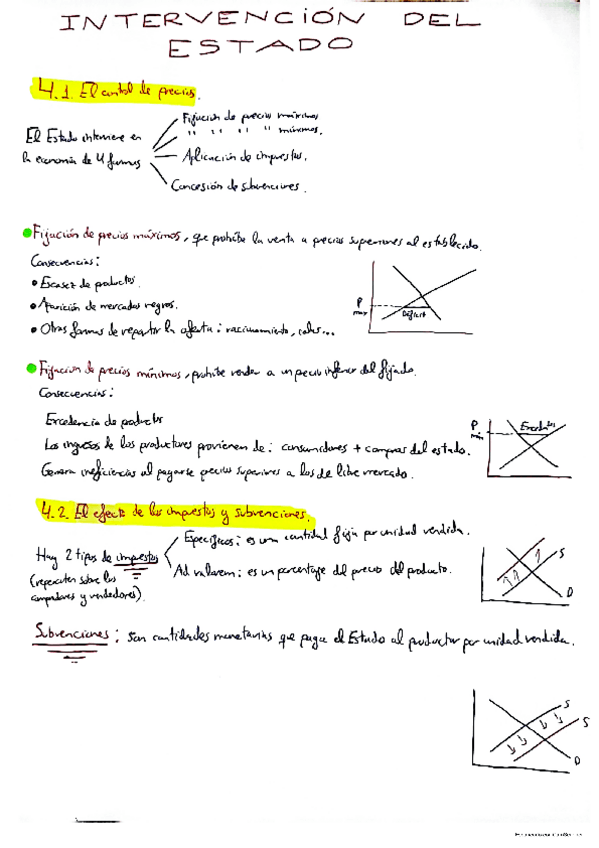 INTERVENCIÓN DEL
ESTADO
4.1. El control de precios.
El Estado interviene en
la economía de 4 formas
Fijación de precios máximos
" " " " mínimos.
Aplicación de impuestos.
Concesión de subvenciones.
Fijación de precios máximos, que prohíbe la venta a precios superiores al establecido.
Consecuencias:
• Escasez de productos.
• Aparición de mercados negros.
• Otras formas de repartir la oferta: racionamiento, colas...
P max
Déficit
Fijación de precios mínimos, prohíbe vender a un precio inferior del fijado.
Consecuencias:
Excedencia de productos
Los ingresos de los productores provienen de: consumidores + compras del estado.
Genera ineficiencias al pagarse precios superiores a los de libre mercado.
P. min
Excedentes
4.2. El efecto de los impuestos y subvenciones.
Hay 2 tipos de impuestos
(repercuten sobre los
compradores y vendedores).
Específicos: es una cantidad fija por unidad vendida.
Ad valorem: es un porcentaje del precio del producto.
S
D
Subvenciones: son cantidades monetarias que paga el Estado al productor por unidad vendida.
S
S
D